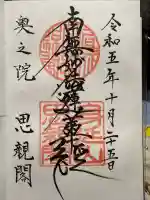 令和五年十月二十五日
南無妙法蓮華経
奥之院
思親閣